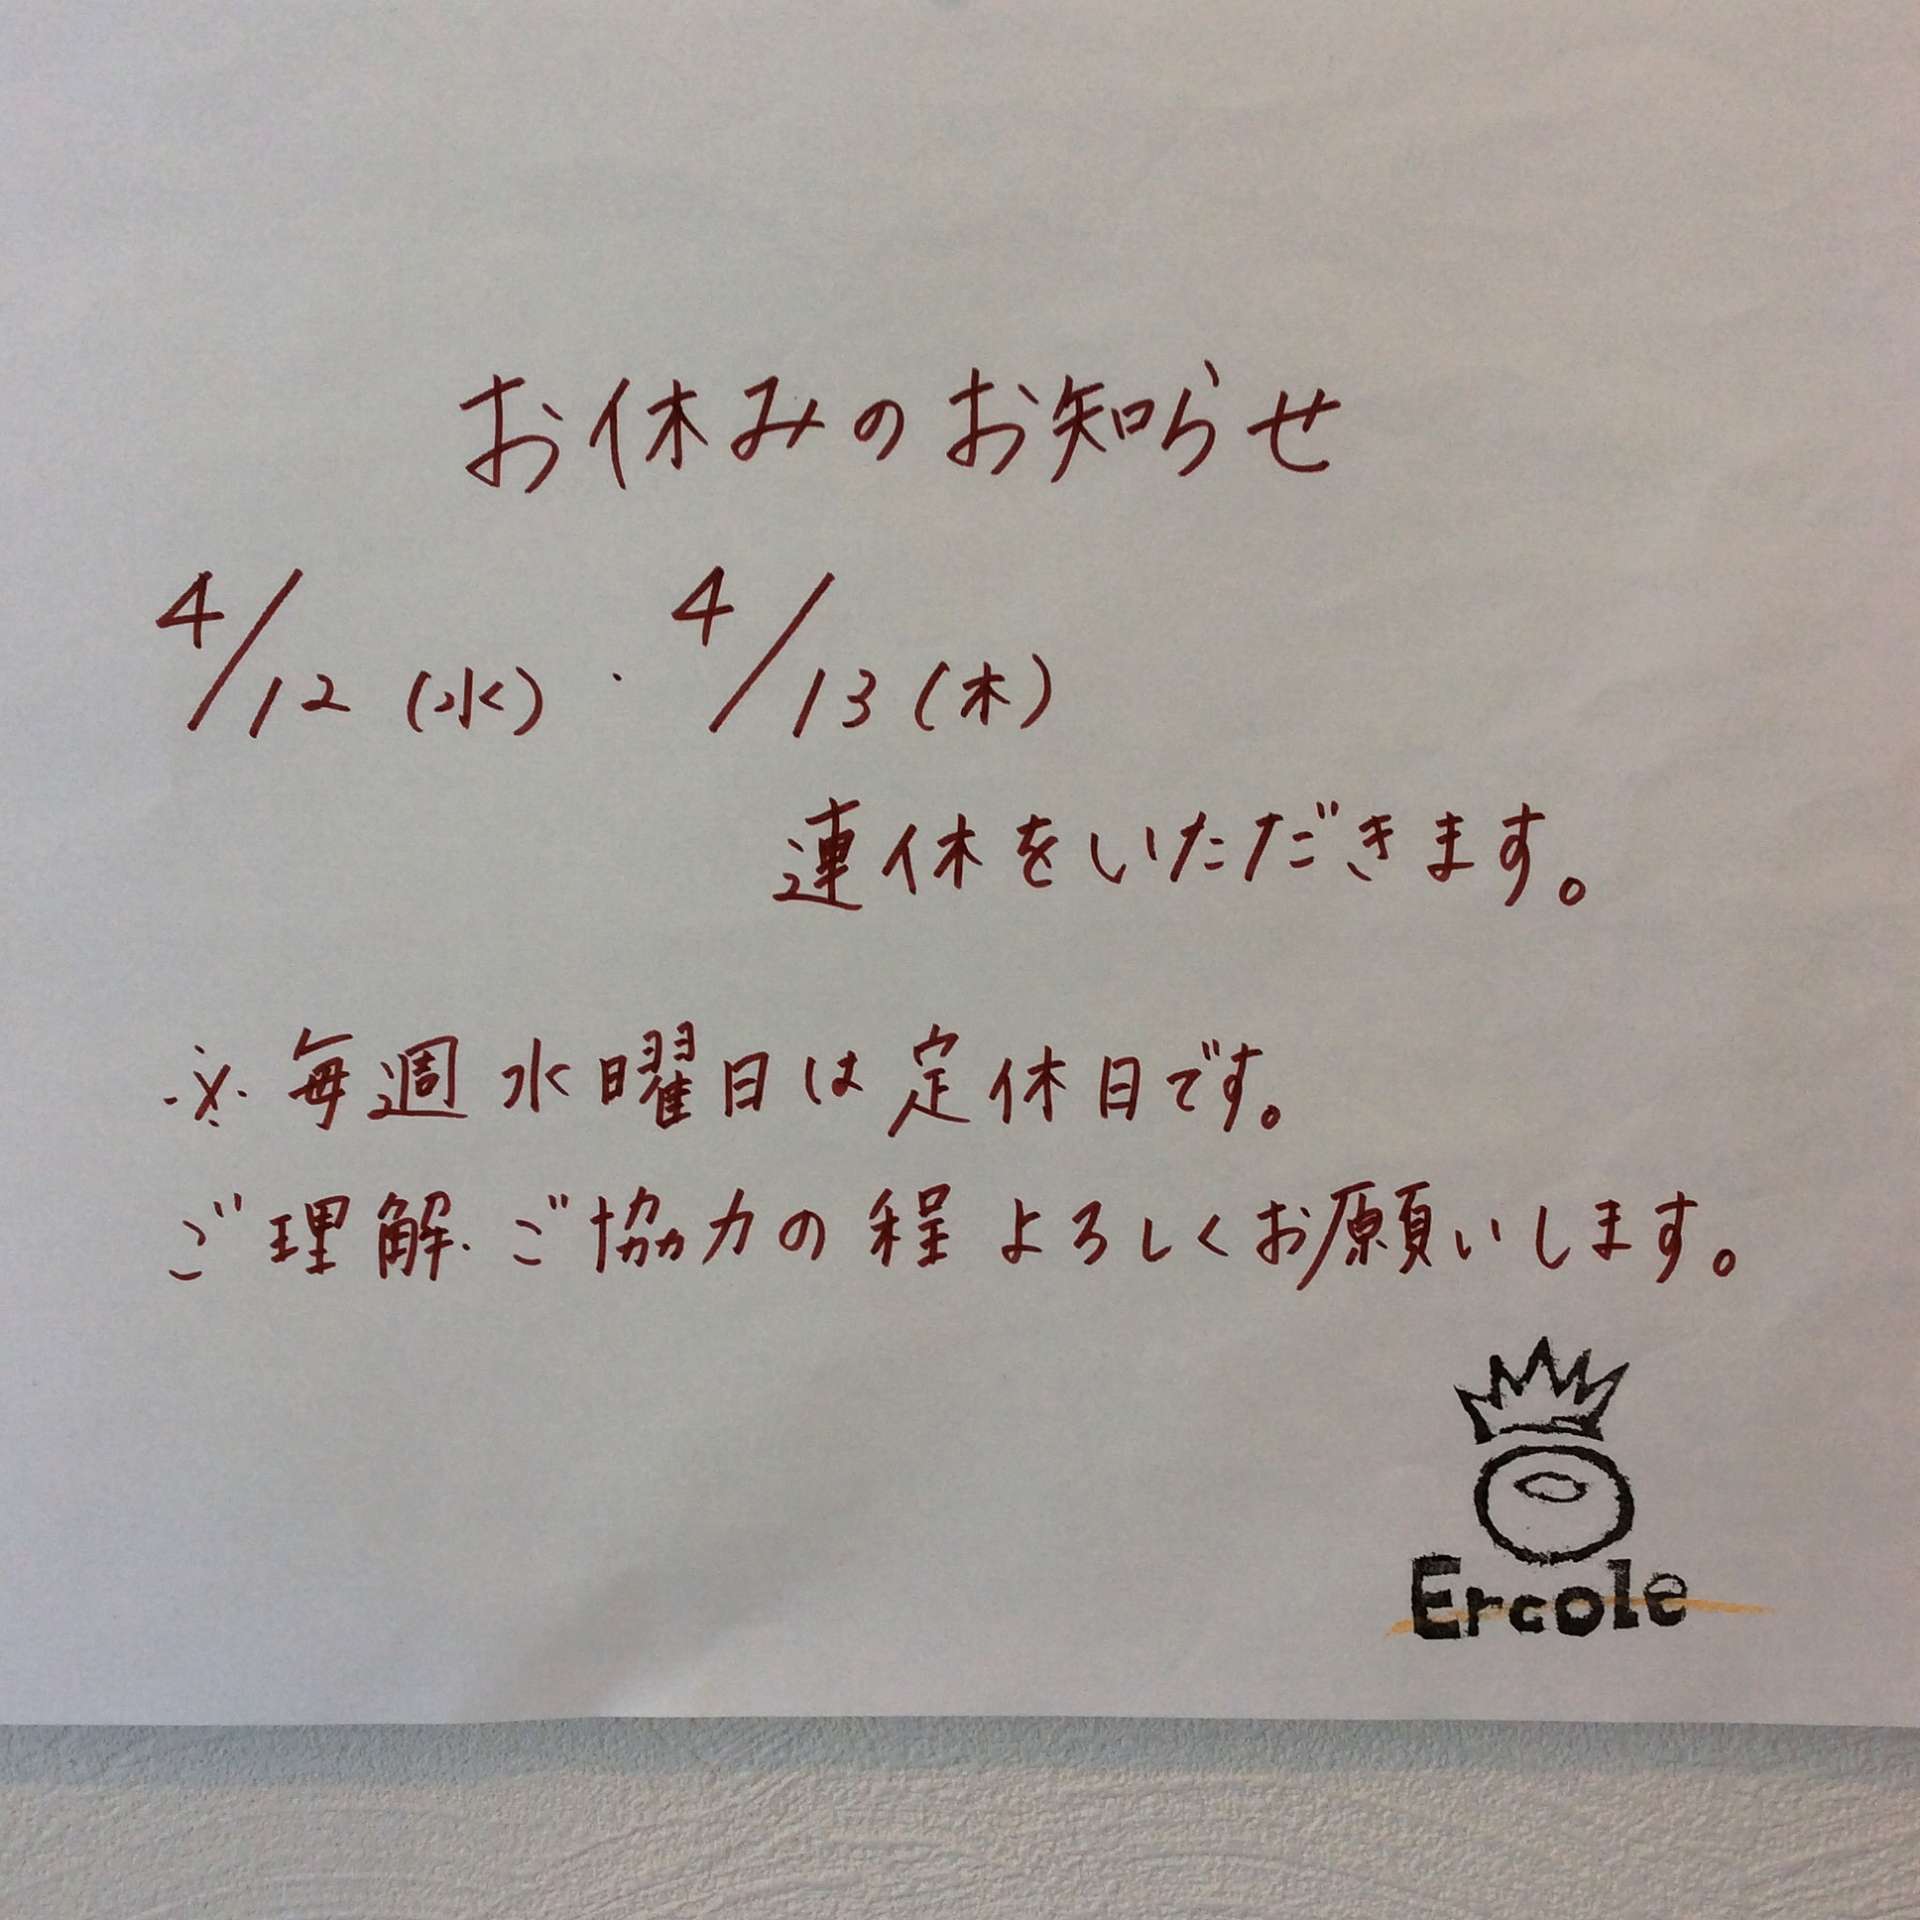 お休みのお知らせ
4/12(水)・4/13(木)
連休をいただきます。
※毎週水曜日は定休日です。
ご理解・ご協力の程よろしくお願いします。
Ercole